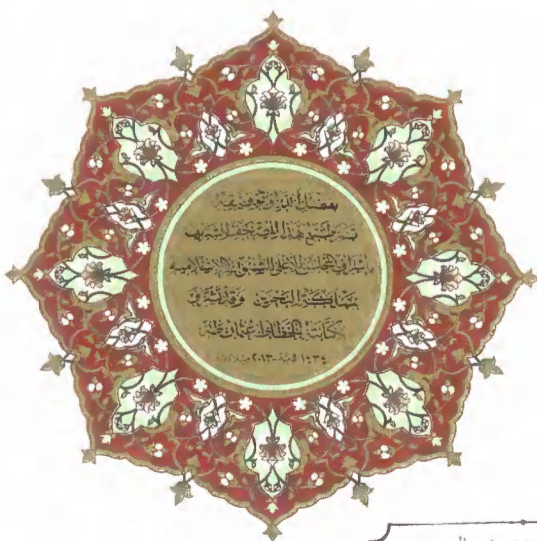 بفضل الله وتوفيقه
تم طبع هذا المصحف الشريف
بإشراف المجلس الأعلى للشئون الإسلامية
بمملكة البحرين وقد شرف
بكتابته الخطاط عثمان طه
١٤٣٤ هجرية - ٢٠١٣ ميلادية